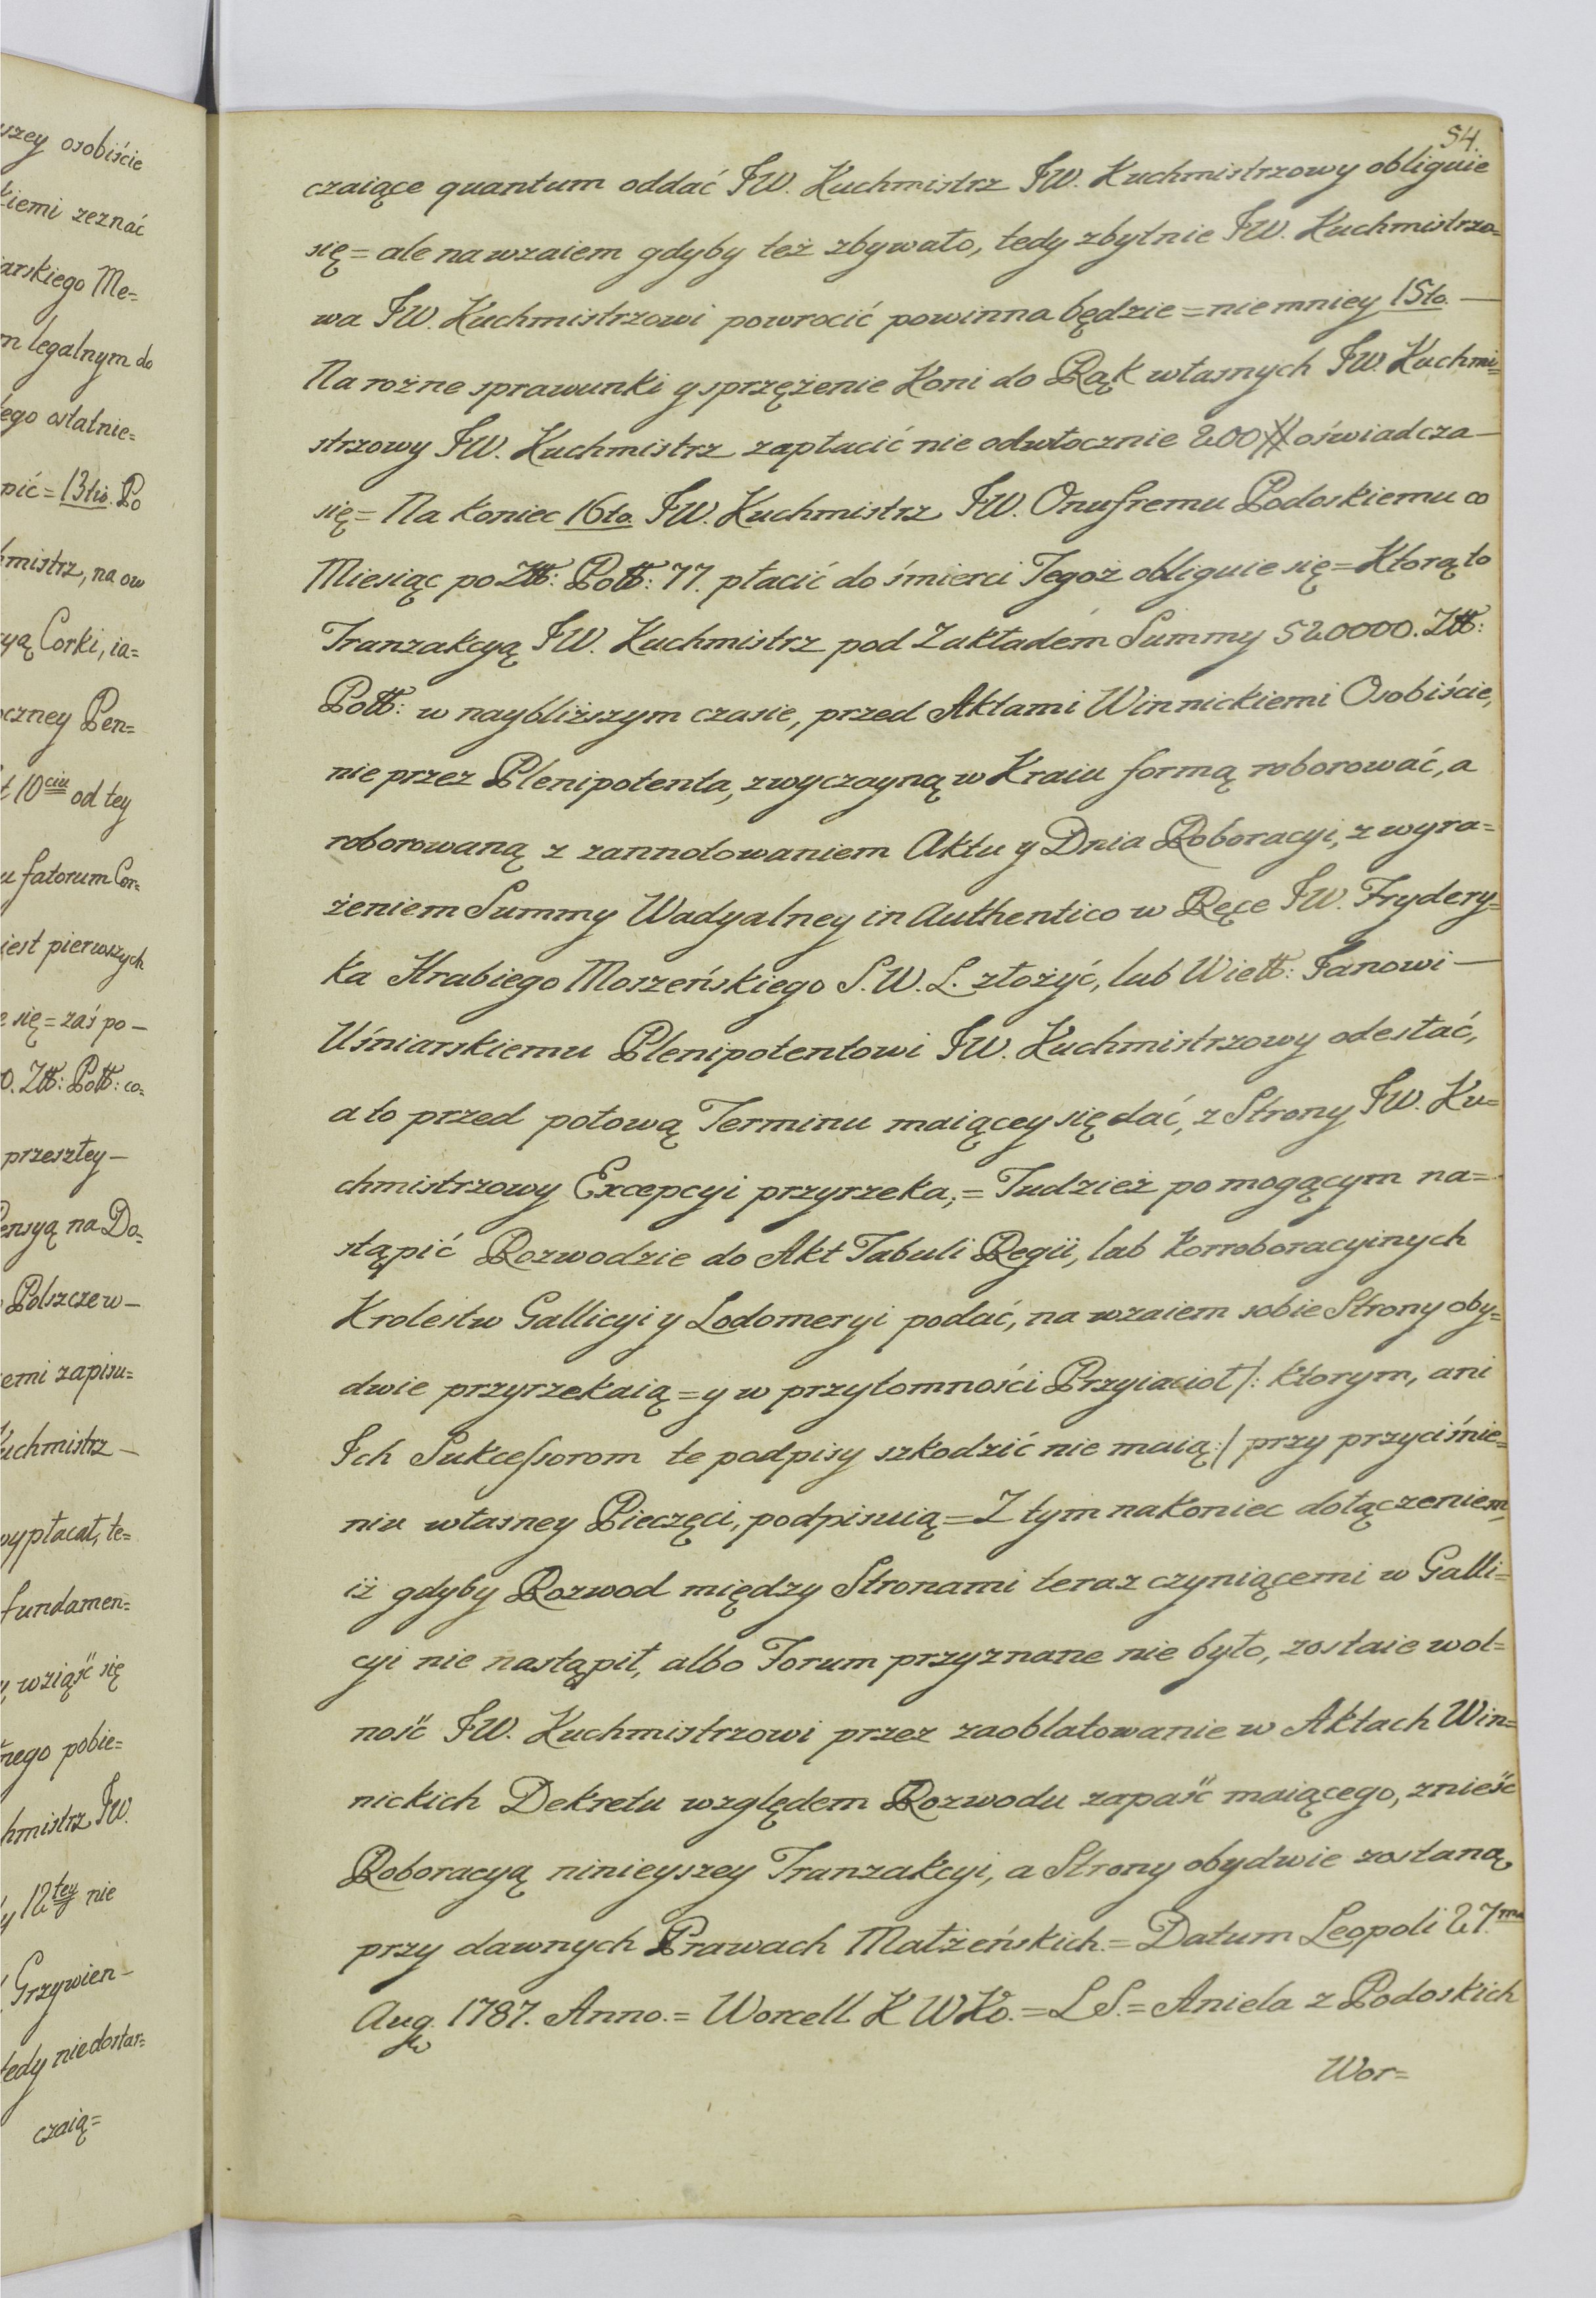 yszey osobiście
kiemi zeznać
iarskiego Me=
m legalnym do
tego ostatnie=
pić = 13tio. Po
hmistrz, na ow
cyą Corki, ia=
oczney Pen=
t 10ciu od tey
u fatorum Cor=
iest pierwszych
e się = zaś po —
0. Złł: Polł: co=
przeszłey —
Pensyą na Do=
Polszcze w —
emi zapisu=
Kuchmistrz —
wypłacał, te=
fundamen=
wziąść się
nego pobie=
hmistrz JW.
y 12tey nie
Grzywien —
tedy niedostar=
czaią=
54.
czaiące quantum oddać JW. Kuchmistrz JW. Kuchmistrzowy obliguie
się = ale na wzaiem gdyby też zbywało, tedy zbytnie JW. Kuchmistrzo=
wa JW. Kuchmistrzowi powrocić powinna będzie = nie mniey 15to. —
Na rożne sprawunki y sprzężenie Koni do Rąk własnych JW. Kuchmi=
strzowy JW. Kuchmistrz zapłacić nie odwłocznie 200 # oświadcza —
się = Na koniec 16to. JW. Kuchmistrz JW. Onufremu Podoskiemu co
Miesiąc po Złł: Polł: 77. płacić do śmierci Tegoż obliguie się = Ktorą to
Tranzakcyą JW. Kuchmistrz pod Zakładem Summy 520000. Złł:
Polł: w naybliższym czasie, przed Aktami Winnickiemi Osobiście,
nie przez Plenipotenta, zwyczayną w Kraiu formą roborować, a
roborowaną z zannotowaniem Aktu y Dnia Roboracyi, z wyra=
żeniem Summy Wadyalney in Authentico w Ręce JW. Frydery=
ka Hrabiego Moszeńskiego S. W. L. złożyć, lub Wiełł: Janowi —
Uśniarskiemu Plenipotentowi JW. Kuchmistrzowy odesłać,
a to przed połową Terminu maiącey się dać, z Strony JW. Ku=
chmistrzowy Excepcyi przyrzeka; = Tudzież po mogącym na=
stąpić Rozwodzie do Akt Tabuli Regii, lub Korroboracyinych
Krolestw Gallicyi y Lodomeryi podać, na wzaiem sobie Strony oby=
dwie przyrzekaią = y w przytomności Przyiacioł /: ktorym, ani
Ich Sukcessorom te podpisy szkodzić nie maią :/ przy przyciśnie=
niu własney Pieczęci, podpisuią = Z tym nakoniec dołączeniem,
iż gdyby Rozwod między Stronami teraz czyniącemi w Galli=
cyi nie nastąpił, albo Forum przyznane nie było, zostaie wol=
ność JW. Kuchmistrzowi przez zaoblatowanie w Aktach Win=
nickich Dekretu względem Rozwodu zapaść maiącego, znieść
Roboracyą ninieyszey Tranzakcyi, a Strony obydwie zostaną
przy dawnych Prawach Małżeńskich. = Datum Leopoli 27ma
Aug. 1787. Anno. = Worcell K WKo. = L S. = Aniela z Podoskich
Wor=